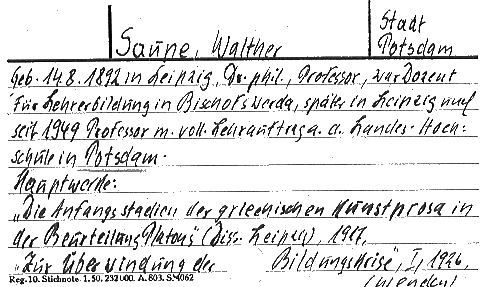 Saupe, Walther
Stadt
Potsdam
Geb. 14.8.1892 in Leipzig, Dr. phil., Professor, war Dozent
für Lehrerbildung in Bischofswerda, später in Leipzig und
seit 1949 Professor m. voll. Lehrauftrag a. d. Landes-Hoch-
schule in Potsdam.
Hauptwerke:
„Die Anfangsstadien der griechischen Kunstprosa in
der Beurteilung Platons" (Diss. Leipzig), 1917.
„Zur Überwindung der Bildungskrise", I, 1926.
Reg. 10. Stichnote. 1.50. 232000. A.803. S/4062